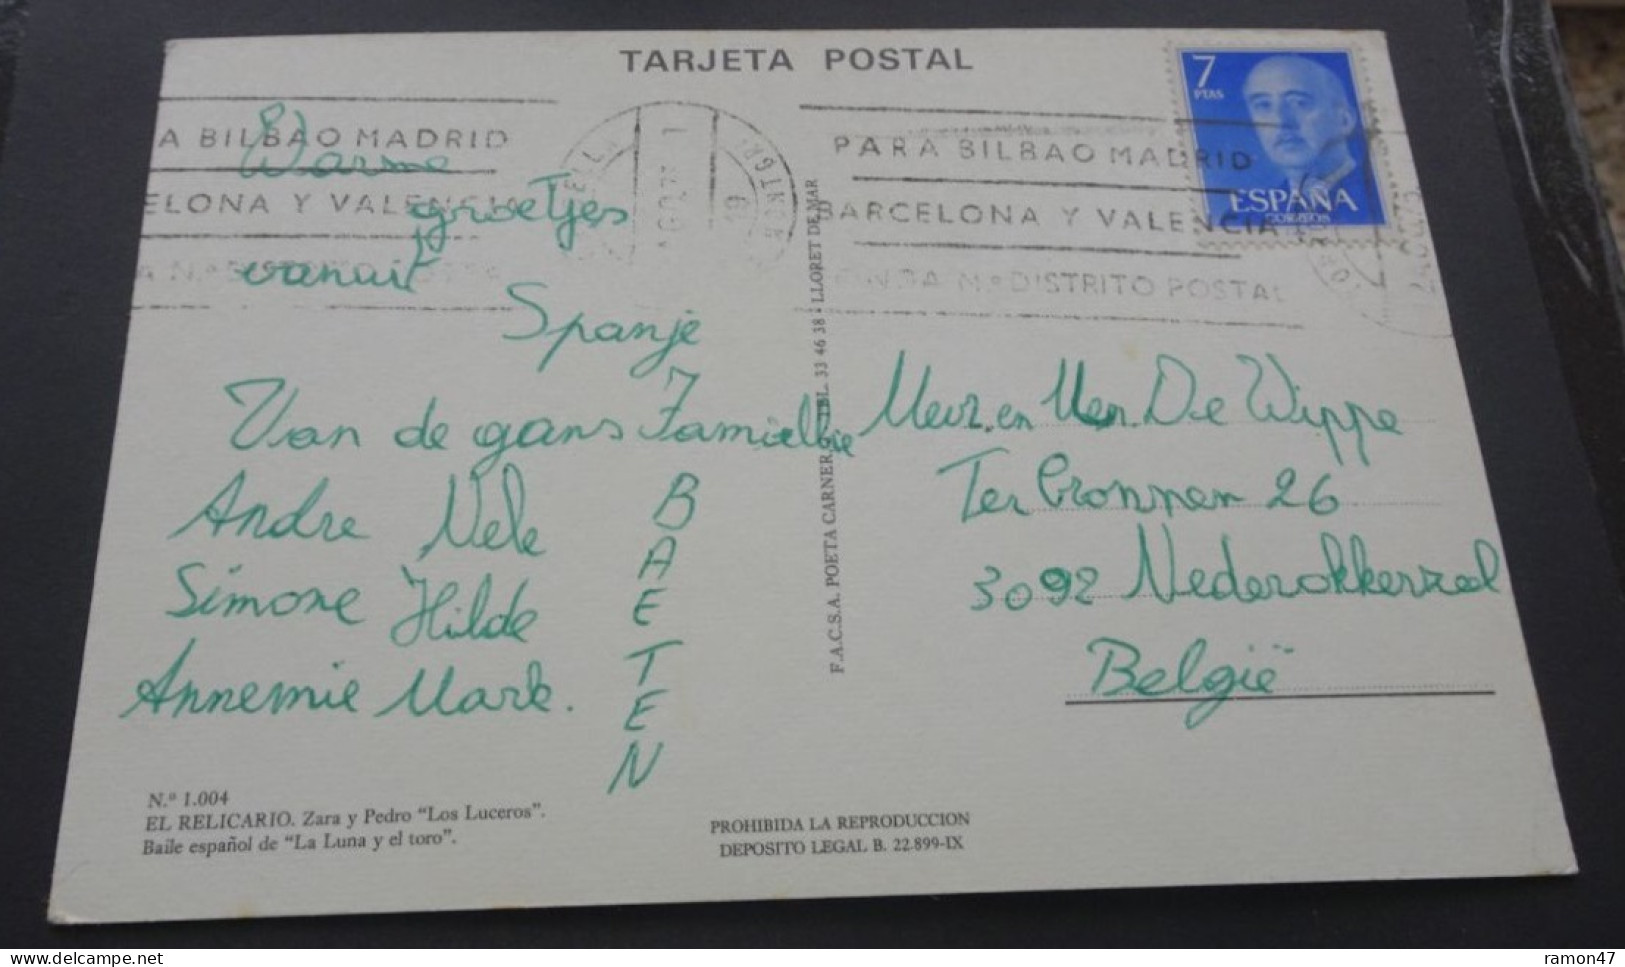 TARJETA POSTAL
7
PTAS
ESPAÑA
CORREOS
A BILBAO MADRID
ELONA Y VALENCIA
PARA BILBAO MADRID
BARCELONA Y VALENCIA
DISTRITO POSTAL
Warme
groetjes
vanuit
Spanje
Van de gans Familie
Andre Nele
Simone Hilde
Annemie Mark.
BAETEN
F.A.C.S.A. POETA CARNER, TEL. 33 46 38 - LLORET DE MAR
Mevr. en Men. De Wippe
Ter Bronnen 26
3092 Nederokkerzeel
België
N.º 1.004
EL RELICARIO. Zara y Pedro “Los Luceros”.
Baile español de “La Luna y el toro”.
PROHIBIDA LA REPRODUCCION
DEPOSITO LEGAL B. 22.899-IX
ramon47